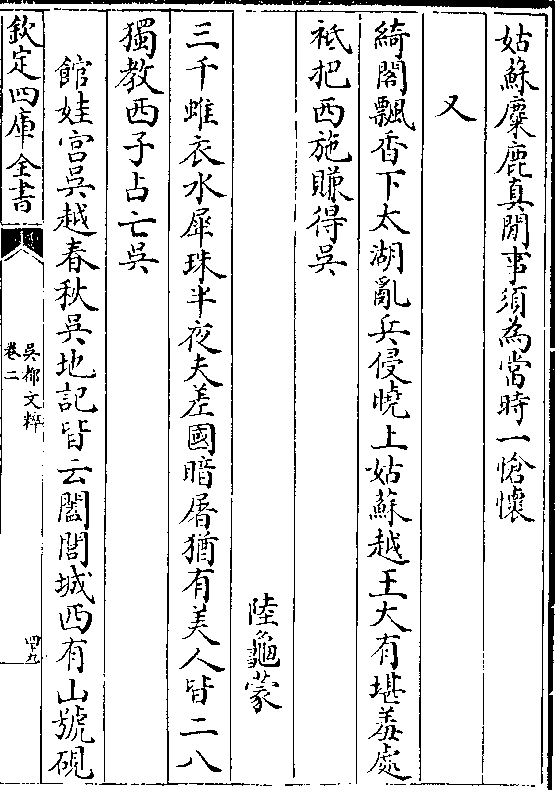 姑蘇麋鹿真閒事須為當時一愴懷
又
綺閣飄香下太湖亂兵侵曉上姑蘇越王大有堪羞處
祇把西施賺得吳
陸龜蒙
三千雖衣水犀珠半夜夫差國暗屠猶有美人皆二八
獨教西子占亡吳
館娃宫吳越春秋吳地記皆云闔閭城西有山號硯
欽定四庫全書
吳都文粹
卷二
四十九